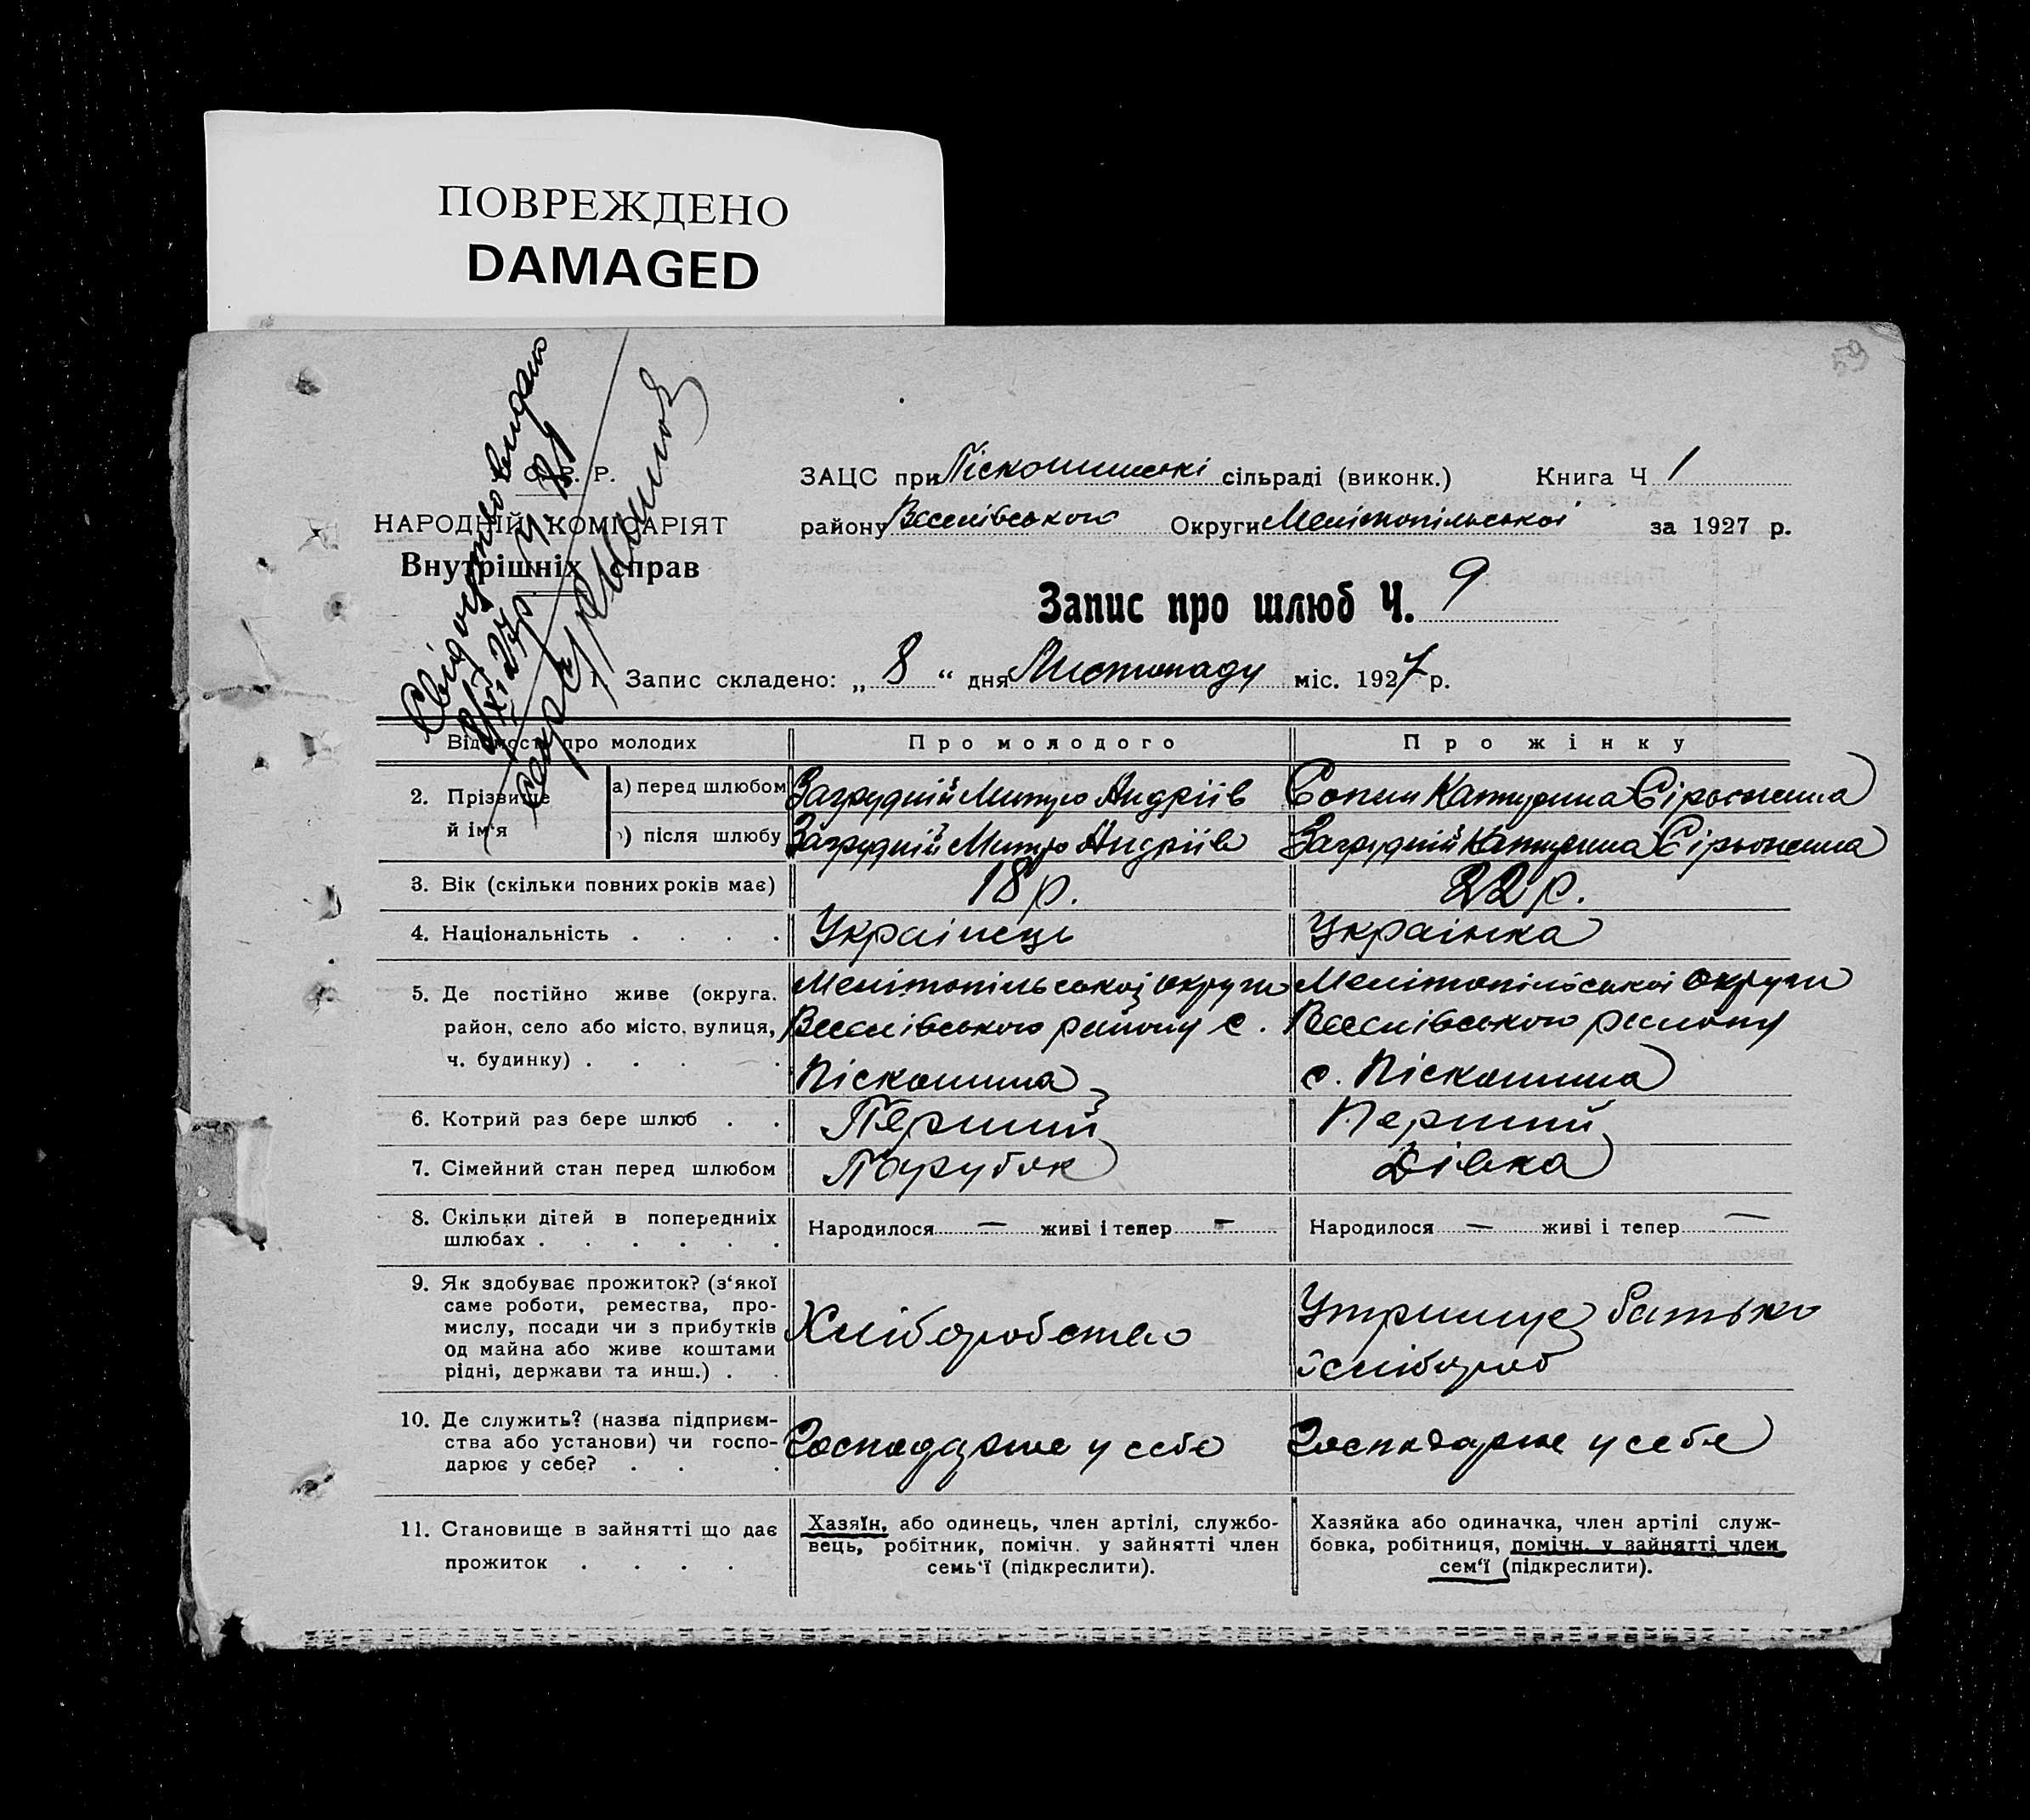 ПОВРЕЖДЕНО
DAMAGED
59
Свідоцтво видано
С. Р. Р.
НАРОДНІЙ КОМІСАРІЯТ
Внутрішніх справ
ЗАЦС при Піскошинські сільраді (виконк.) Книга Ч 1
району Веселівського Округи Мелітопільської за 1927 р.
Запис про шлюб Ч. 9
1. Запис складено: „ 8 “ дня Листопаду міс. 1927 р.
Відомості про молодих Про молодого Про жінку
2. Прізвище й ім‘я
а) перед шлюбом Загрудній Митро Андріїв Сопин Катерина
б) після шлюбу Загрудній Митро Андріїв Загрудній Катерина
3. Вік (скільки повних років має) 18 р. 22 р.
4. Національність . . . . Українець Українка
5. Де постійно живе (округа. Мелітопільської округи Мелітопільської округи
район, село або місто, вулиця, Веселівського району с. Веселівського району
ч. будинку) . . . . Піскошина с. Піскошина
6. Котрий раз бере шлюб . . Перший Перший
7. Сімейний стан перед шлюбом Парубок Дівка
8. Скільки дітей в попередніх Народилося — живі і тепер — Народилося — живі і тепер —
шлюбах . . . . . .
9. Як здобуває прожиток? (з‘якої
саме роботи, ремества, про-
мислу, посади чи з прибутків Хліборобство Утримує батько
од майна або живе коштами хлібороб
рідні, держави та инш.) . .
10. Де служить? (назва підприєм-
ства або установи) чи госпо- Господарює у себе Господарює у себе
дарює у себе? . . .
11. Становище в зайнятті що дає Хазяїн, або одинець, член артілі, службо- Хазяйка або одиначка, член артілі служ-
прожиток . . . . вець, робітник, помічн. у зайнятті член бовка, робітниця, помічн. у зайнятті член
семь‘ї (підкреслити). сем‘ї (підкреслити).